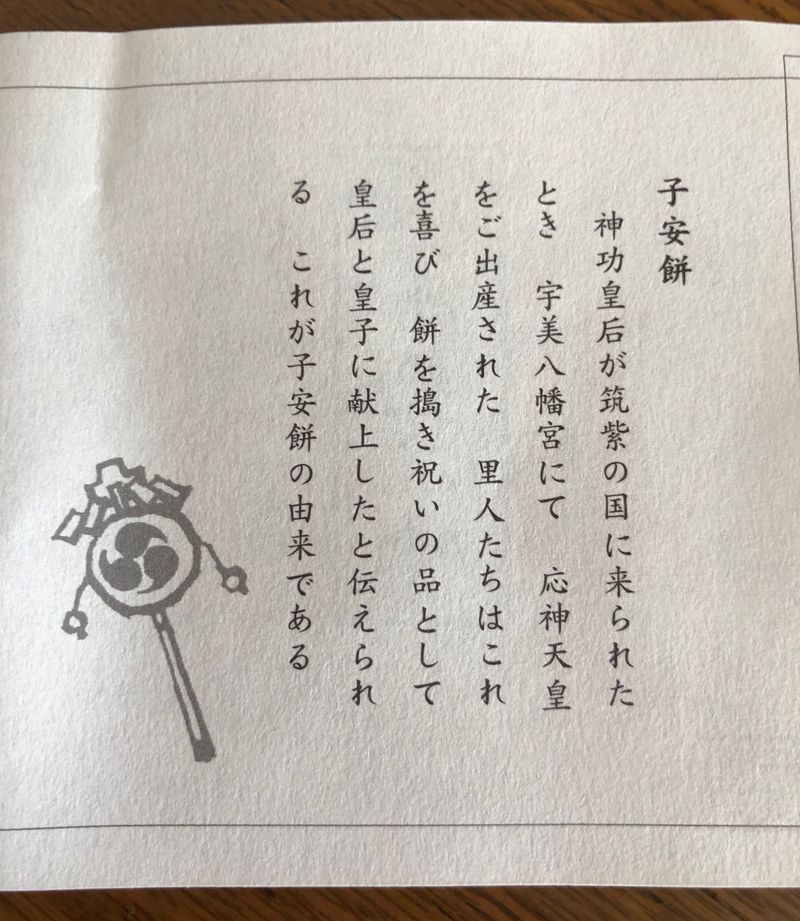 子安餅
神功皇后が筑紫の国に来られた
とき　宇美八幡宮にて　応神天皇
をご出産された　里人たちはこれ
を喜び　餅を搗き祝いの品として
皇后と皇子に献上したと伝えられ
る　これが子安餅の由来である